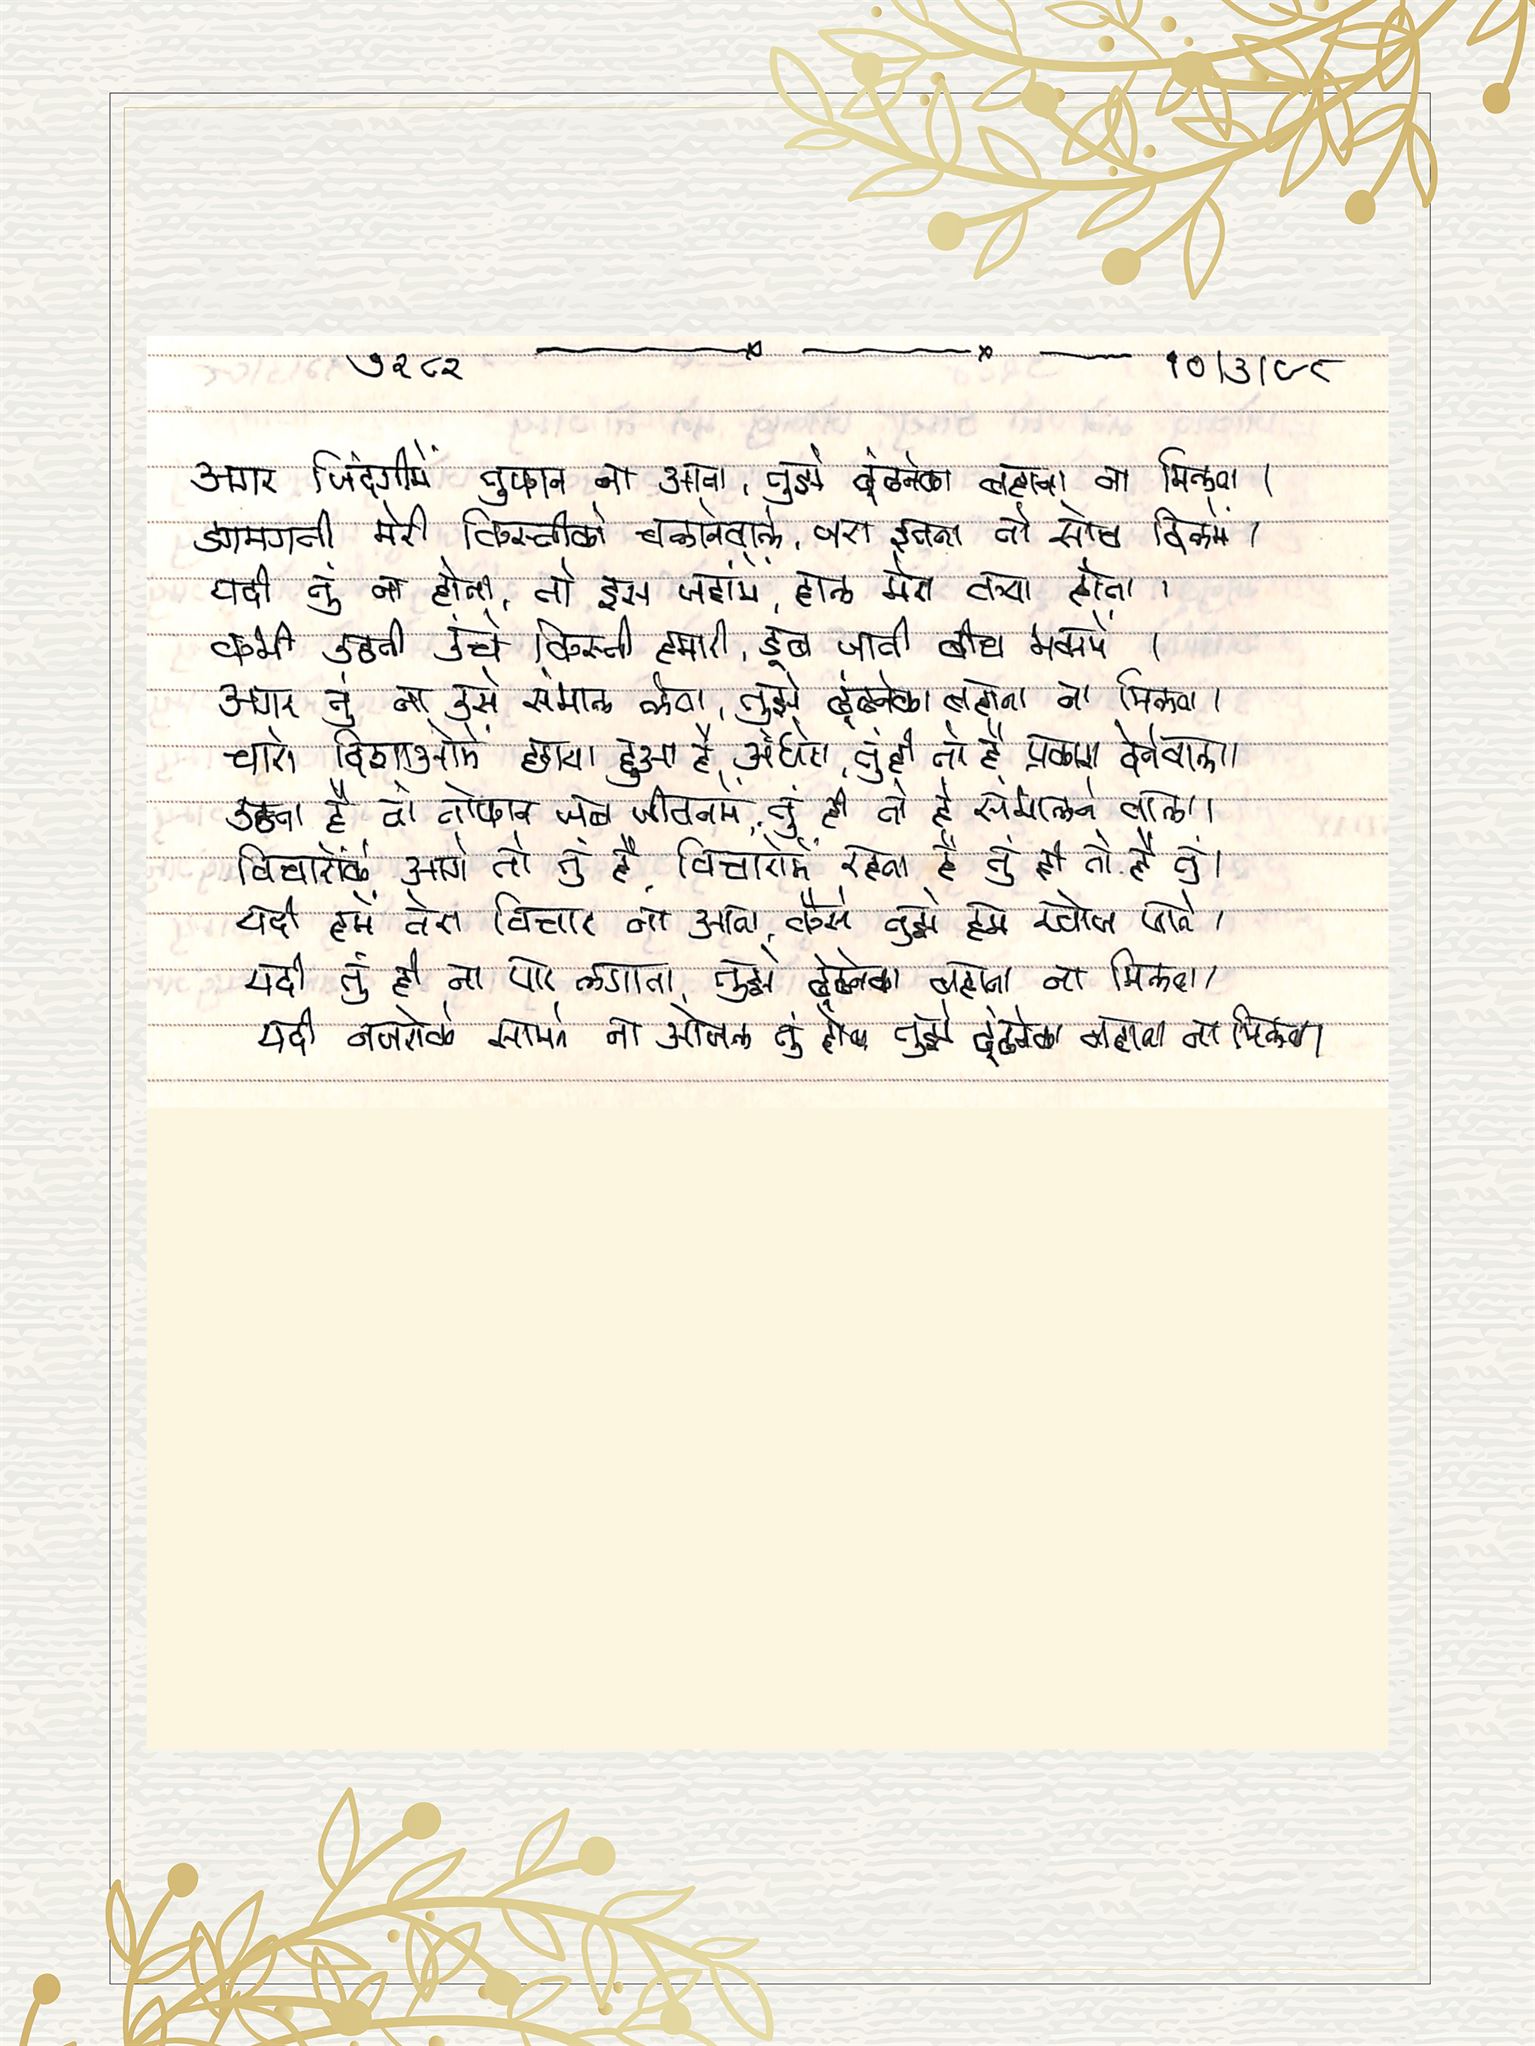 ७२८२ १०/३/८८
अगर जिंदगीमें तुफान ना आता, तुझे ढूंढनेका बहाना ना मिलता ।
डगमगती मेरी किस्तीको चलानेवाले, जरा इतना तो सोच दिलमें ।
यदी तुं ना होता, तो इस जहांमें, हाल मेरा क्या होता ।
कभी उठती उंचे किस्ती हमारी, डूब जाती बीच भवरमें ।
अगर तुं ना उसे संभाल लेता, तुझे ढूंढनेका बहाना ना मिलता ।
चारो दिशाओमें छाया हुआ है अंधेरा, तुं ही तो है प्रकाश देनेवाला ।
उठता है तो तोफान जब जीवनमें, तुं ही तो है संभालने वाला ।
विचारोंके आगे तो तुं है, विचारोमें रहता है तुं ही तो है तुं ।
यदी हमें तेरा विचार ना आता, कैसे तुझे हम खोज पाते ।
यदी तुं ही ना पार लगाता, तुझे ढूंढनेका बहाना ना मिलता ।
यदी नजरोके सामने ना ओजल तुं होता तुझे ढूंढनेका बहाना ना मिलता ।